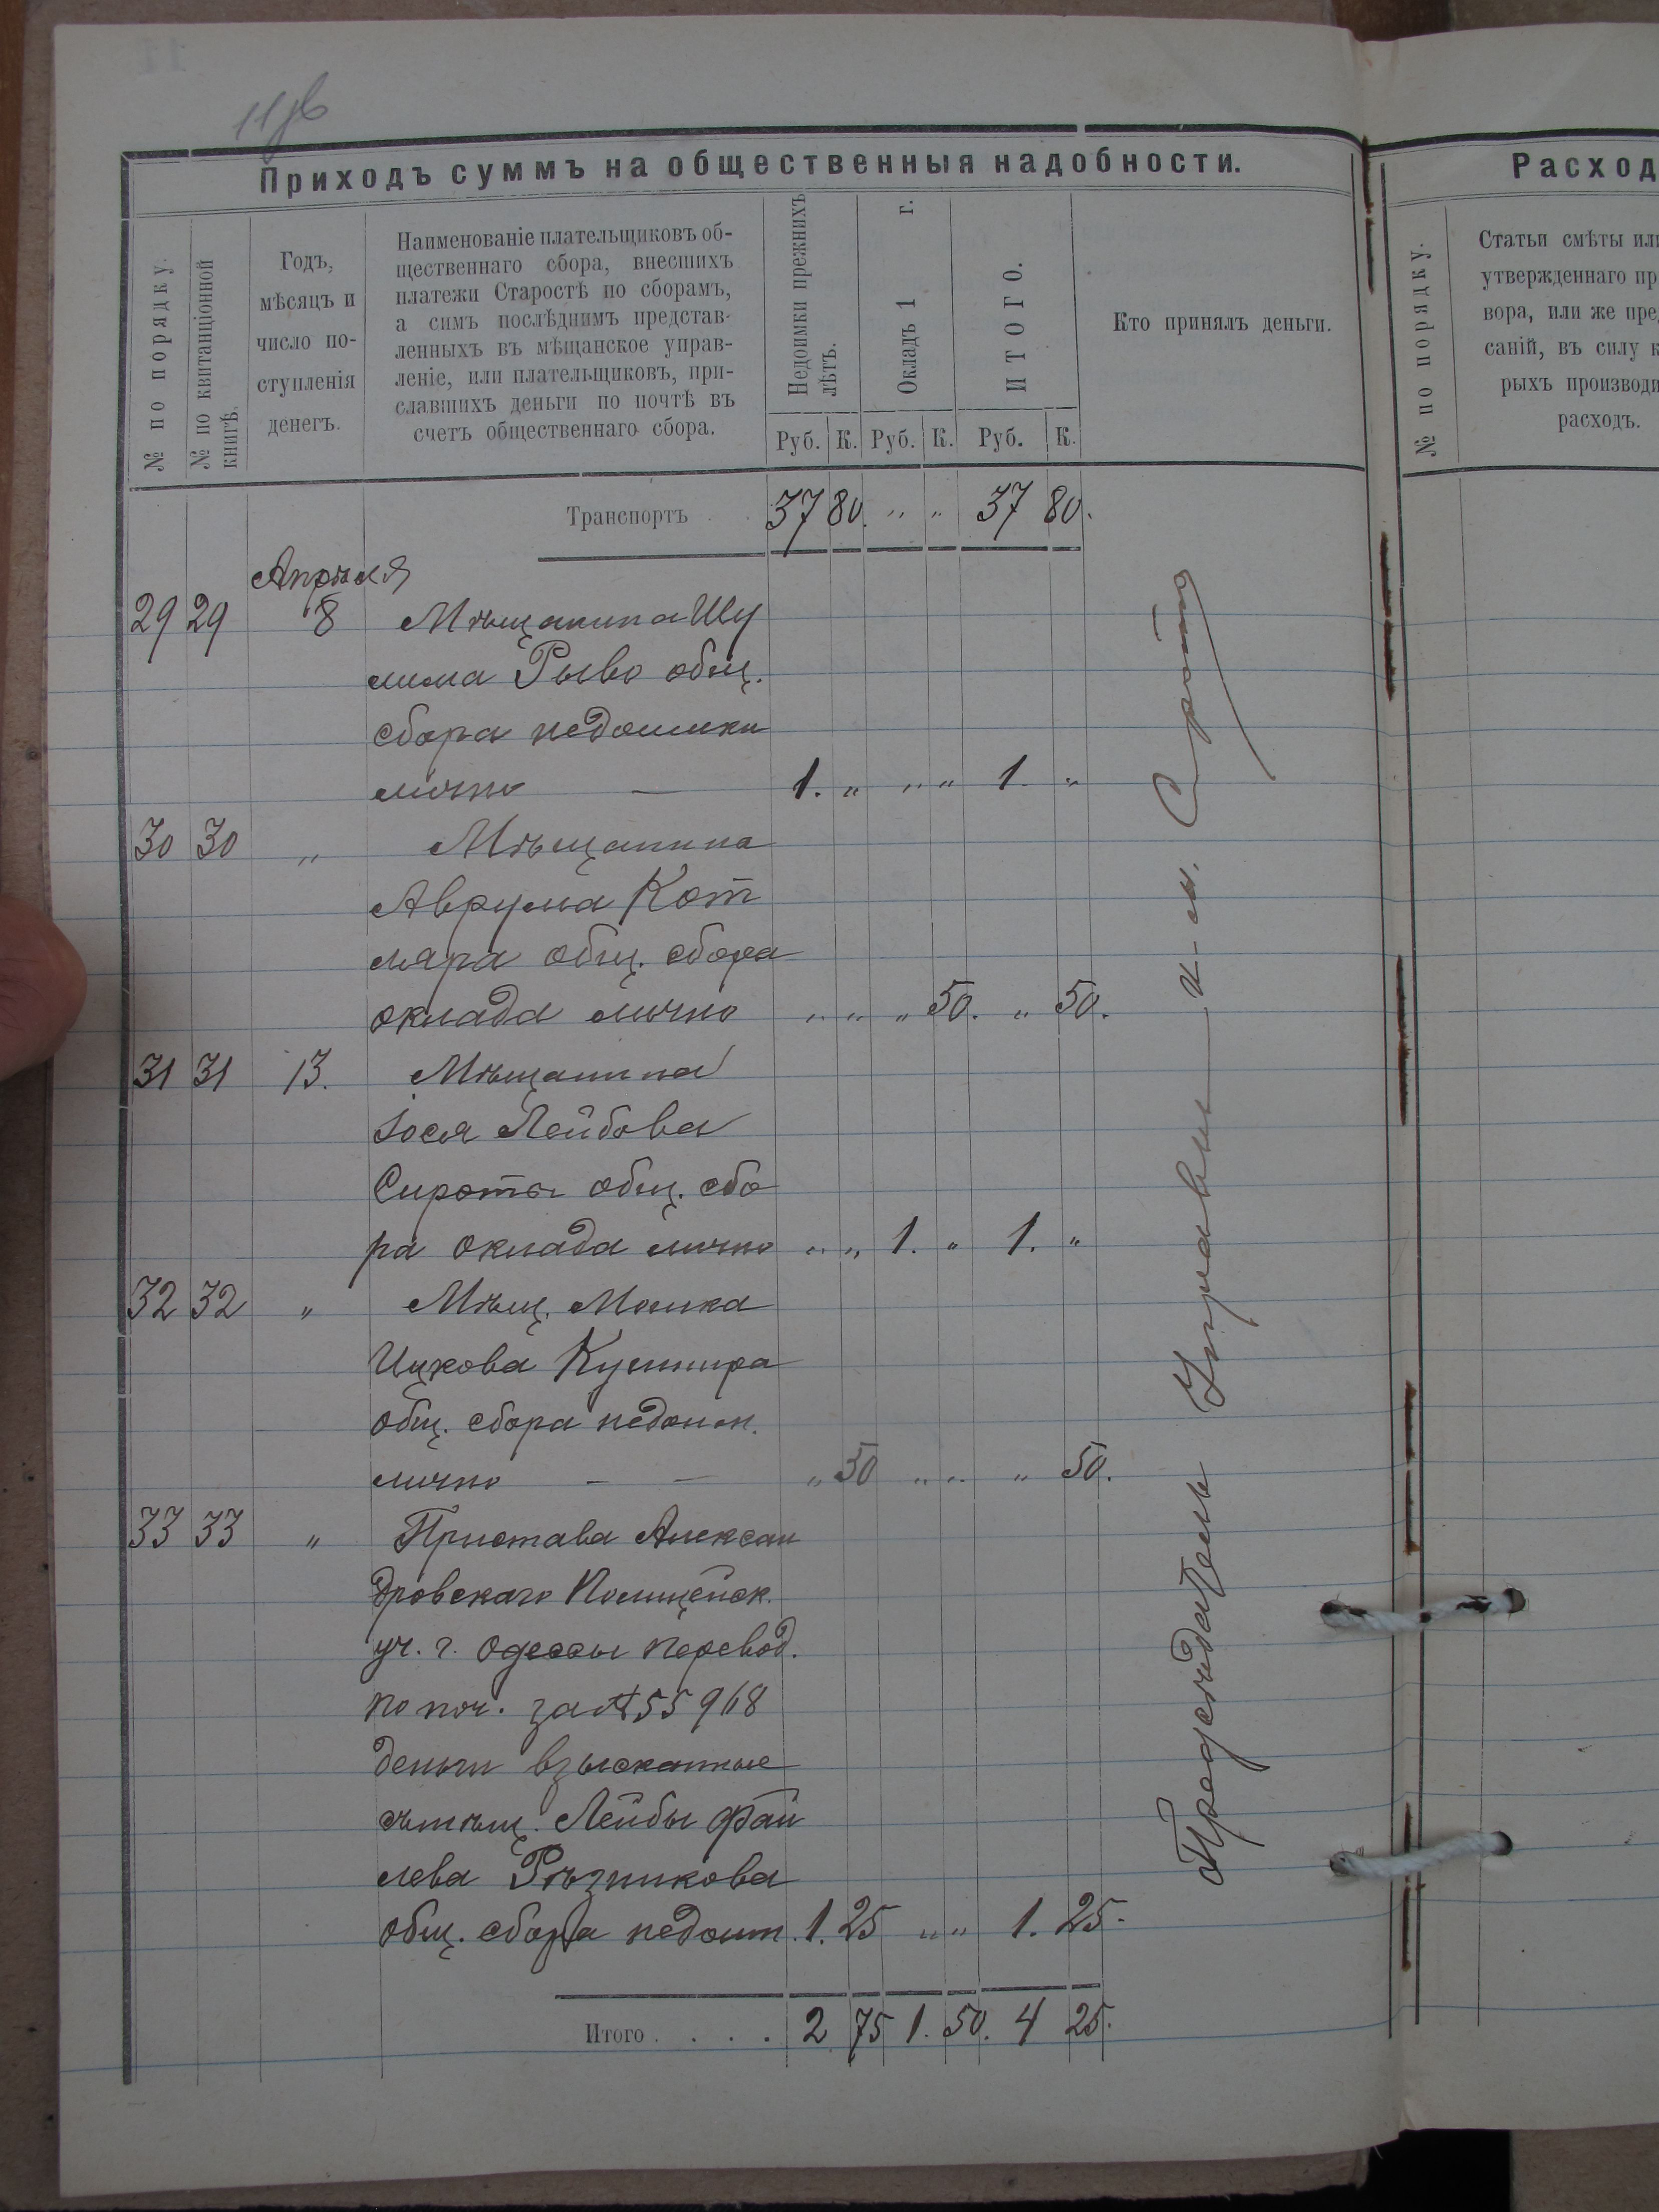 11
Приходъ суммъ на общественныя надобности.
№ по порядку.
№ по квитанціонной
книгѣ.
Годъ,
мѣсяцъ и
число по-
ступленія
денегъ.
Наименованіе плательщиковъ об-
щественнаго сбора, внесшихъ
платежи Старостѣ по сборамъ,
а симъ послѣднимъ представ-
ленныхъ въ мѣщанское управ-
леніе, или плательщиковъ, при-
славшихъ деньги по почтѣ въ
счетъ общественнаго сбора.
Недоимки прежнихъ
лѣтъ.
Окладъ 1 г.
ИТОГО.
Руб. К. Руб. К. Руб. К.
Кто принялъ деньги.
Транспортъ . . 37 80. „ „ 37 80.
Апрѣля
29 29 8 Мѣщанина Шу
лима Рыво общ.
сбора недоимки
лично — 1. „ „ „ 1. „
30 30 „ Мѣщанина
Аврума Кот
ляра общ. сбора
оклада лично „ „ „ 50. „ 50.
31 31 13. Мѣщанина
Іося Лейбова
Сироты общ. сбо
ра оклада лично „ „ 1. „ 1. „
32 32 „ Мѣщ. Мошка
Ицкова Кушнира
общ. сбора недоим.
лично — — „ 50 „ „ „ 50.
33 33 „ Пристава Алексан
дровскаго Полицейск.
уч. г. Одессы перевод.
по поч. за № 55968
деньги взысканные
съ мѣщ. Лейбы Фай
лева Рѣзникова
общ. сбора недоим. 1. 25 „ „ 1. 25.
Итого . . . . 2 75 1. 50. 4 25.
Предсѣдатель Управы
Расход
№ по порядку.
Статьи смѣты или
утвержденнаго пр
вора, или же пред
саній, въ силу к
рыхъ производи
расходъ.